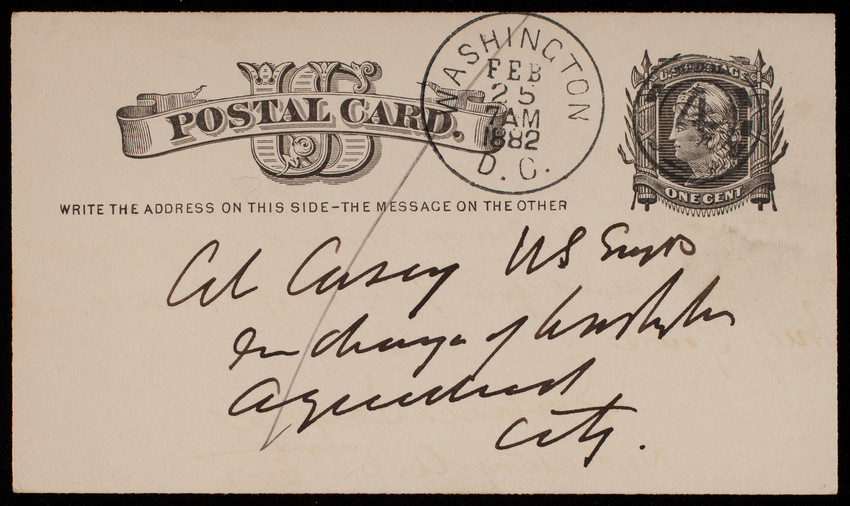 US
POSTAL CARD.
WASHINGTON
FEB
25
7AM
1882
D. C.
U.S. POSTAGE
4
ONE CENT
WRITE THE ADDRESS ON THIS SIDE-THE MESSAGE ON THE OTHER
Col Casey US Engrs
In charge of Washgtn
Aqueduct
City.